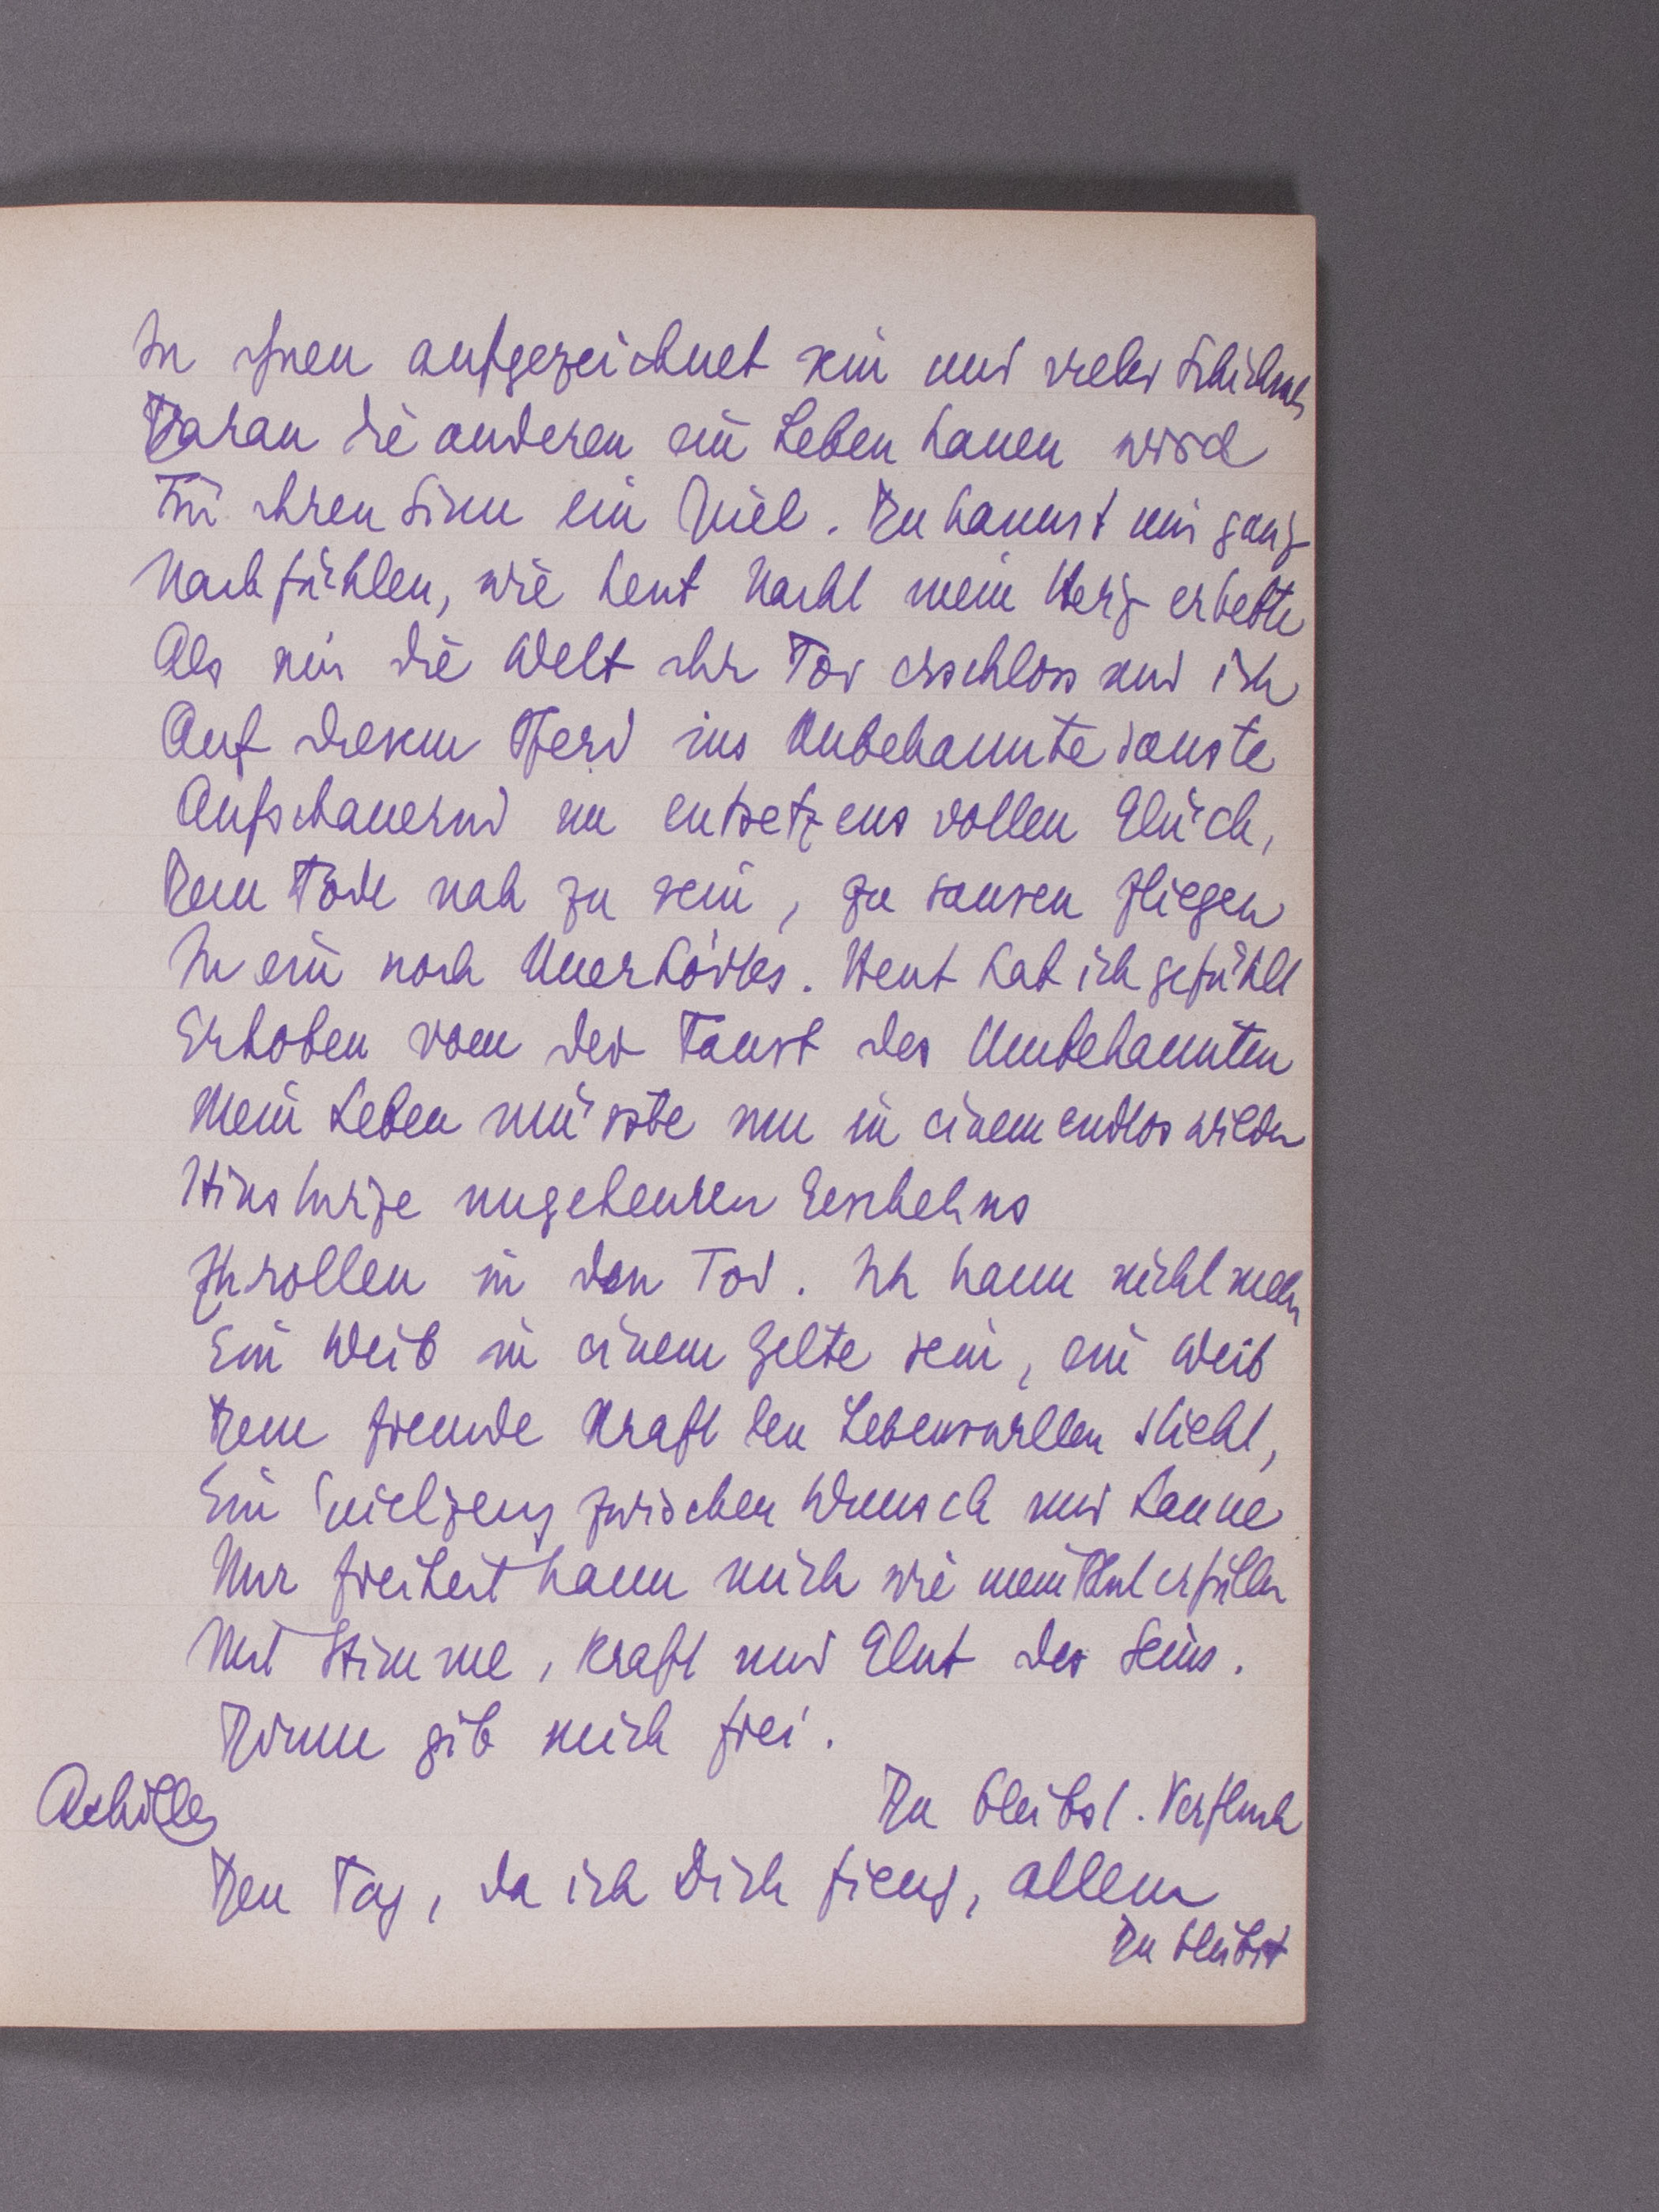 In ihnen aufgezeichnet sein und vieler Schicksal
Daran die anderen ein Leben bauen wird
Für ihren Sinn ein Ziel. Du kannst nur ganz
Nachfühlen, wie heut Nacht mein Herz erbebte
Als mir die Welt ihr Tor erschloss und ich
Auf diesem Pferd ins Unbekannte sauste
Aufschauernd im entsetzensvollen Glück,
Dem Tode nah zu sein, zu sausen fliegen
In ein noch Unerhörtes. Heut hab ich gefühlt
Erhoben von der Faust des Unbekannten
Mein Leben müsste nun in einem endlos wilden
Hinsturze ungeheuren Geschehns
Zurollen in den Tod. Ich kann nicht mehr
Ein Weib in einem Zelte sein, ein Weib
Dem fremde Kraft den Lebenswillen stiehlt,
Ein Spielzeug zwischen Wunsch und Laune
Nur Freiheit kann mich wie mein Blut erfüllen
Mit Stimme, Kraft und Glut des Seins.
Drum gib mich frei.
Achilles
Du bleibst. Verfluch
Den Tag, da ich Dich fieng, allem
Du bleibst